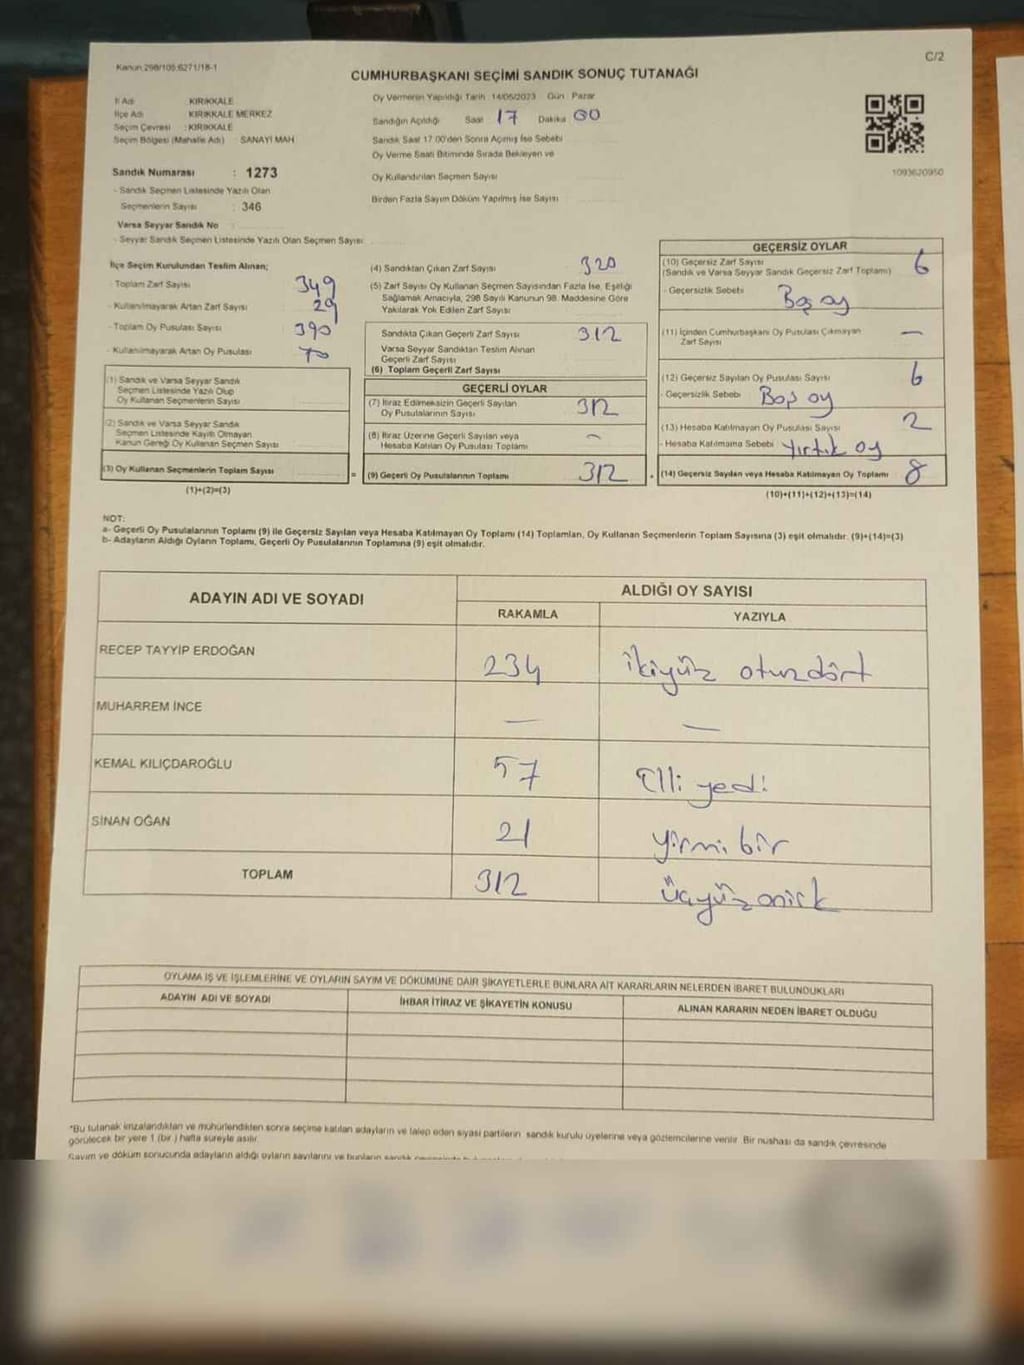 Kanun 298/105;6271/18-1
C/2
CUMHURBAŞKANI SEÇİMİ SANDIK SONUÇ TUTANAĞI
İl Adı KIRIKKALE
İlçe Adı KIRIKKALE MERKEZ
Seçim Çevresi : KIRIKKALE
Seçim Bölgesi (Mahalle Adı) SANAYİ MAH
Sandık Numarası : 1273
- Sandık Seçmen Listesinde Yazılı Olan
Seçmenlerin Sayısı : 346
Varsa Seyyar Sandık No
- Seyyar Sandık Seçmen Listesinde Yazılı Olan Seçmen Sayısı
Oy Vermenin Yapıldığı Tarih : 14/05/2023 Gün : Pazar
Sandığın Açıldığı Saat 17 Dakika 00
Sandık Saat 17.00'den Sonra Açılmış İse Sebebi
Oy Verme Saati Bitiminde Sırada Bekleyen ve
Oy Kullandırılan Seçmen Sayısı
Birden Fazla Sayım Döküm Yapılmış İse Sayısı
1093620950
İlçe Seçim Kurulundan Teslim Alınan;
- Toplam Zarf Sayısı 349
- Kullanılmayarak Artan Zarf Sayısı 29
- Toplam Oy Pusulası Sayısı 390
- Kullanılmayarak Artan Oy Pusulası 70
(1) Sandık ve Varsa Seyyar Sandık
Seçmen Listesinde Yazılı Olup
Oy Kullanan Seçmenlerin Sayısı
(2) Sandık ve Varsa Seyyar Sandık
Seçmen Listesinde Kayıtlı Olmayan
Kanun Gereği Oy Kullanan Seçmen Sayısı
(3) Oy Kullanan Seçmenlerin Toplam Sayısı
(1)+(2)=(3)
(4) Sandıktan Çıkan Zarf Sayısı 320
(5) Zarf Sayısı Oy Kullanan Seçmen Sayısından Fazla İse, Eşitliği
Sağlamak Amacıyla, 298 Sayılı Kanunun 98. Maddesine Göre
Yakılarak Yok Edilen Zarf Sayısı
Sandıkta Çıkan Geçerli Zarf Sayısı 312
Varsa Seyyar Sandıktan Teslim Alınan
Geçerli Zarf Sayısı
(6) Toplam Geçerli Zarf Sayısı
GEÇERLİ OYLAR
(7) İtiraz Edilmeksizin Geçerli Sayılan
Oy Pusulalarının Sayısı 312
(8) İtiraz Üzerine Geçerli Sayılan veya
Hesaba Katılan Oy Pusulası Toplamı –
= (9) Geçerli Oy Pusulalarının Toplamı 312
GEÇERSİZ OYLAR
(10) Geçersiz Zarf Sayısı 6
(Sandık ve Varsa Seyyar Sandık Geçersiz Zarf Toplamı)
- Geçersizlik Sebebi Boş oy
(11) İçinden Cumhurbaşkanı Oy Pusulası Çıkmayan
Zarf Sayısı –
(12) Geçersiz Sayılan Oy Pusulası Sayısı 6
- Geçersizlik Sebebi Boş oy
(13) Hesaba Katılmayan Oy Pusulası Sayısı 2
- Hesaba Katılmama Sebebi Yırtık oy
+ (14) Geçersiz Sayılan veya Hesaba Katılmayan Oy Toplamı 8
(10)+(11)+(12)+(13)=(14)
NOT:
a- Geçerli Oy Pusulalarının Toplamı (9) ile Geçersiz Sayılan veya Hesaba Katılmayan Oy Toplamı (14) Toplamları, Oy Kullanan Seçmenlerin Toplam Sayısına (3) eşit olmalıdır. (9)+(14)=(3)
b- Adayların Aldığı Oyların Toplamı, Geçerli Oy Pusulalarının Toplamına (9) eşit olmalıdır.
ADAYIN ADI VE SOYADI ALDIĞI OY SAYISI
RAKAMLA YAZIYLA
RECEP TAYYİP ERDOĞAN 234 ikiyüz otuzdört
MUHARREM İNCE – –
KEMAL KILIÇDAROĞLU 57 Elli yedi
SİNAN OĞAN 21 yirmi bir
TOPLAM 312 üçyüzonick
OYLAMA İŞ VE İŞLEMLERİNE VE OYLARIN SAYIM VE DÖKÜMÜNE DAİR ŞİKAYETLERLE BUNLARA AİT KARARLARIN NELERDEN İBARET BULUNDUKLARI
ADAYIN ADI VE SOYADI İHBAR İTİRAZ VE ŞİKAYETİN KONUSU ALINAN KARARIN NEDEN İBARET OLDUĞU
*Bu tutanak imzalandıktan ve mühürlendikten sonra seçime katılan adayların ve talep eden siyasi partilerin sandık kurulu üyelerine veya gözlemcilerine verilir. Bir nushası da sandık çevresinde
görülecek bir yere 1 (bir ) hafta süreyle asılır.
Sayım ve döküm sonucunda adayların aldığı oyların sayılarını ve bunların